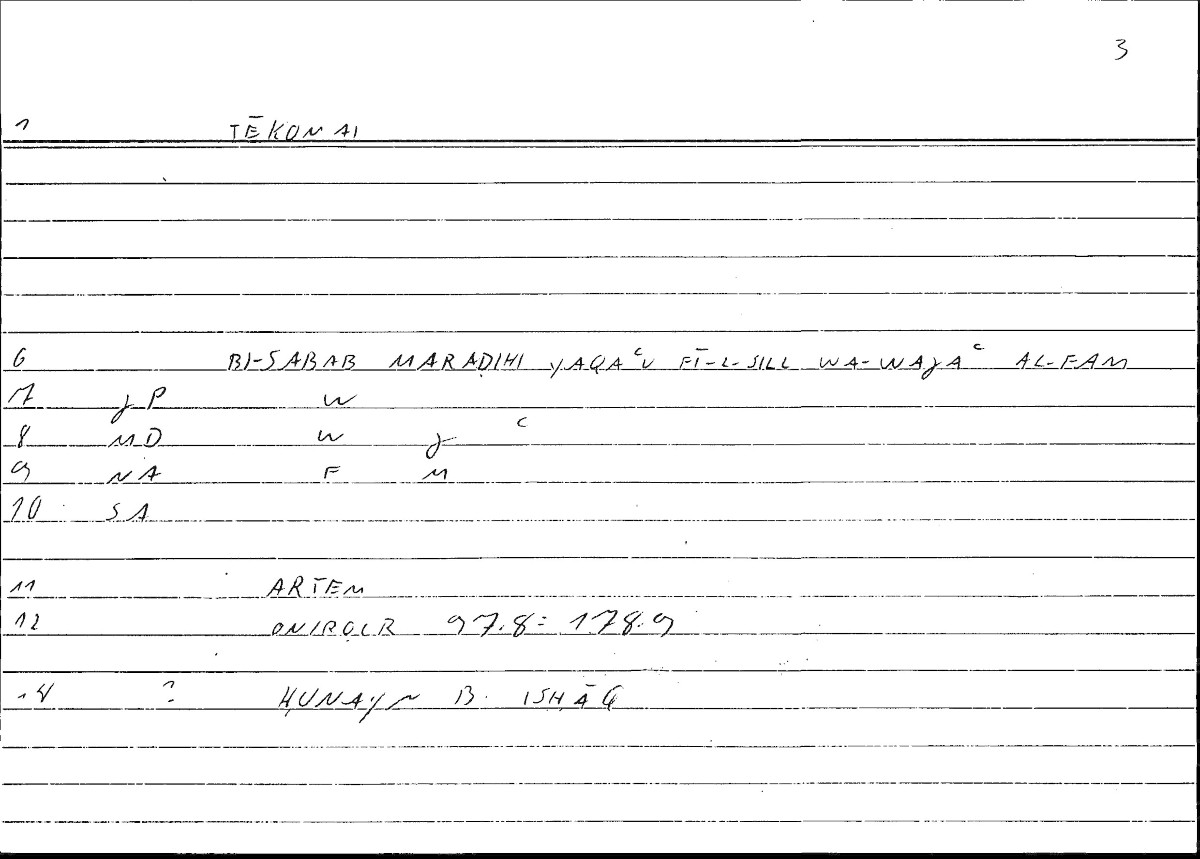 3
1 TĒKOMAI
6 BI-SABAB MARAḌIHI YAQAʿU FĪ-L-SILL WA-WAJAʿ AL-FAM
7 JP W
8 MD W J ʿ
9 NA F M
10 SA
11 ARTEM
12 ONIROCR 97.8 = 178.9
14 ? ḤUNAYN B. ISḤĀQ